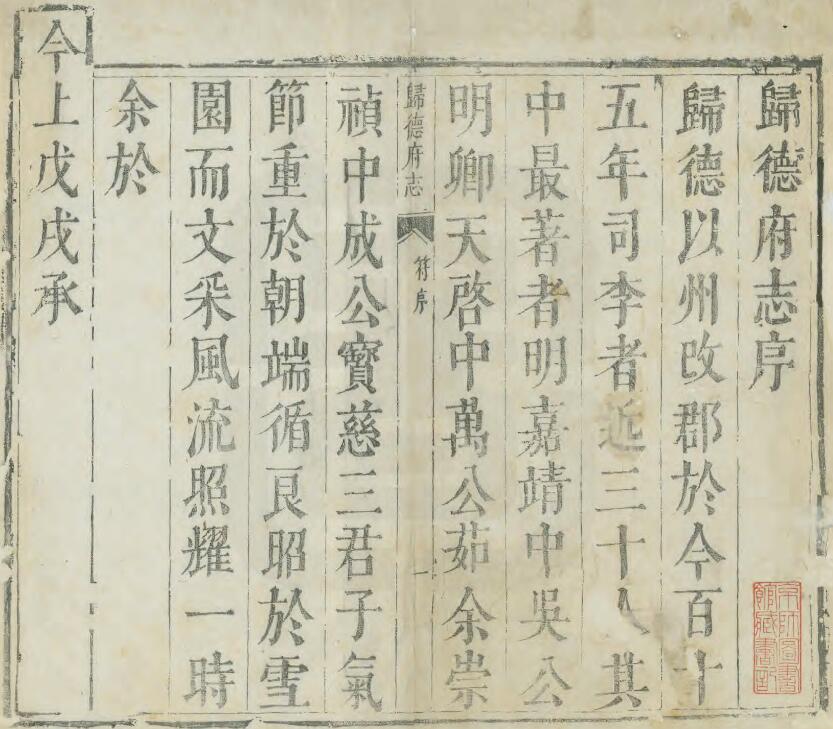 歸德府志序
歸德以州改郡於今百十
五年司李者近三十人其
中最著者明嘉靖中吳公
明卿天啓中萬公茹余崇
歸德府志 符序 一
禎中成公寳慈三君子氣
節重於朝端循良昭於雪
園而文采風流照耀一時
余於
今上戊戌承